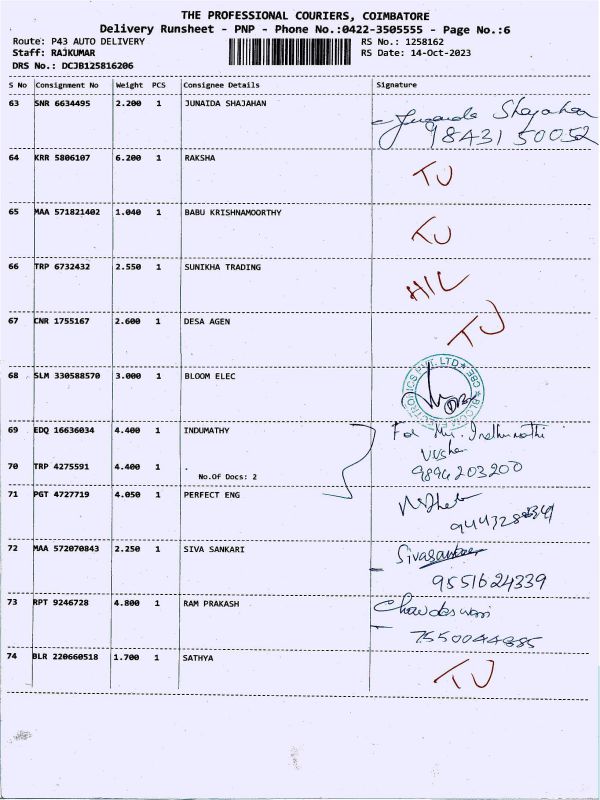 THE PROFESSIONAL COURIERS, COIMBATORE
Delivery Runsheet - PNP - Phone No.:0422-3505555 - Page No.:6
Route: P43 AUTO DELIVERY
RS No.: 1258162
Staff: RAJKUMAR
RS Date: 14-Oct-2023
DRS No.: DCJB125816206
S No Consignment No Weight PCS Consignee Details Signature
63 SNR 6634495 2.200 1 JUNAIDA SHAJAHAN Junaida Shajahan
98431 50052
64 KRR 5806107 6.200 1 RAKSHA TJ
65 MAA 571821402 1.040 1 BABU KRISHNAMOORTHY TJ
66 TRP 6732432 2.550 1 SUNIKHA TRADING H/L
67 CNR 1755167 2.600 1 DESA AGEN TJ
68 SLM 330588570 3.000 1 BLOOM ELEC
BLOOM ELECTRONICS PVT. LTD ★ CBE ★
69 EDQ 16636034 4.400 1 INDUMATHY For Mr. Indhumathi
Usha
70 TRP 4275591 4.400 1 9894203200
No.Of Docs: 2
71 PGT 4727719 4.050 1 PERFECT ENG
72 MAA 572070843 2.250 1 SIVA SANKARI Sivasankari
9551624339
73 RPT 9246728 4.800 1 RAM PRAKASH
74 BLR 220660518 1.700 1 SATHYA TJ